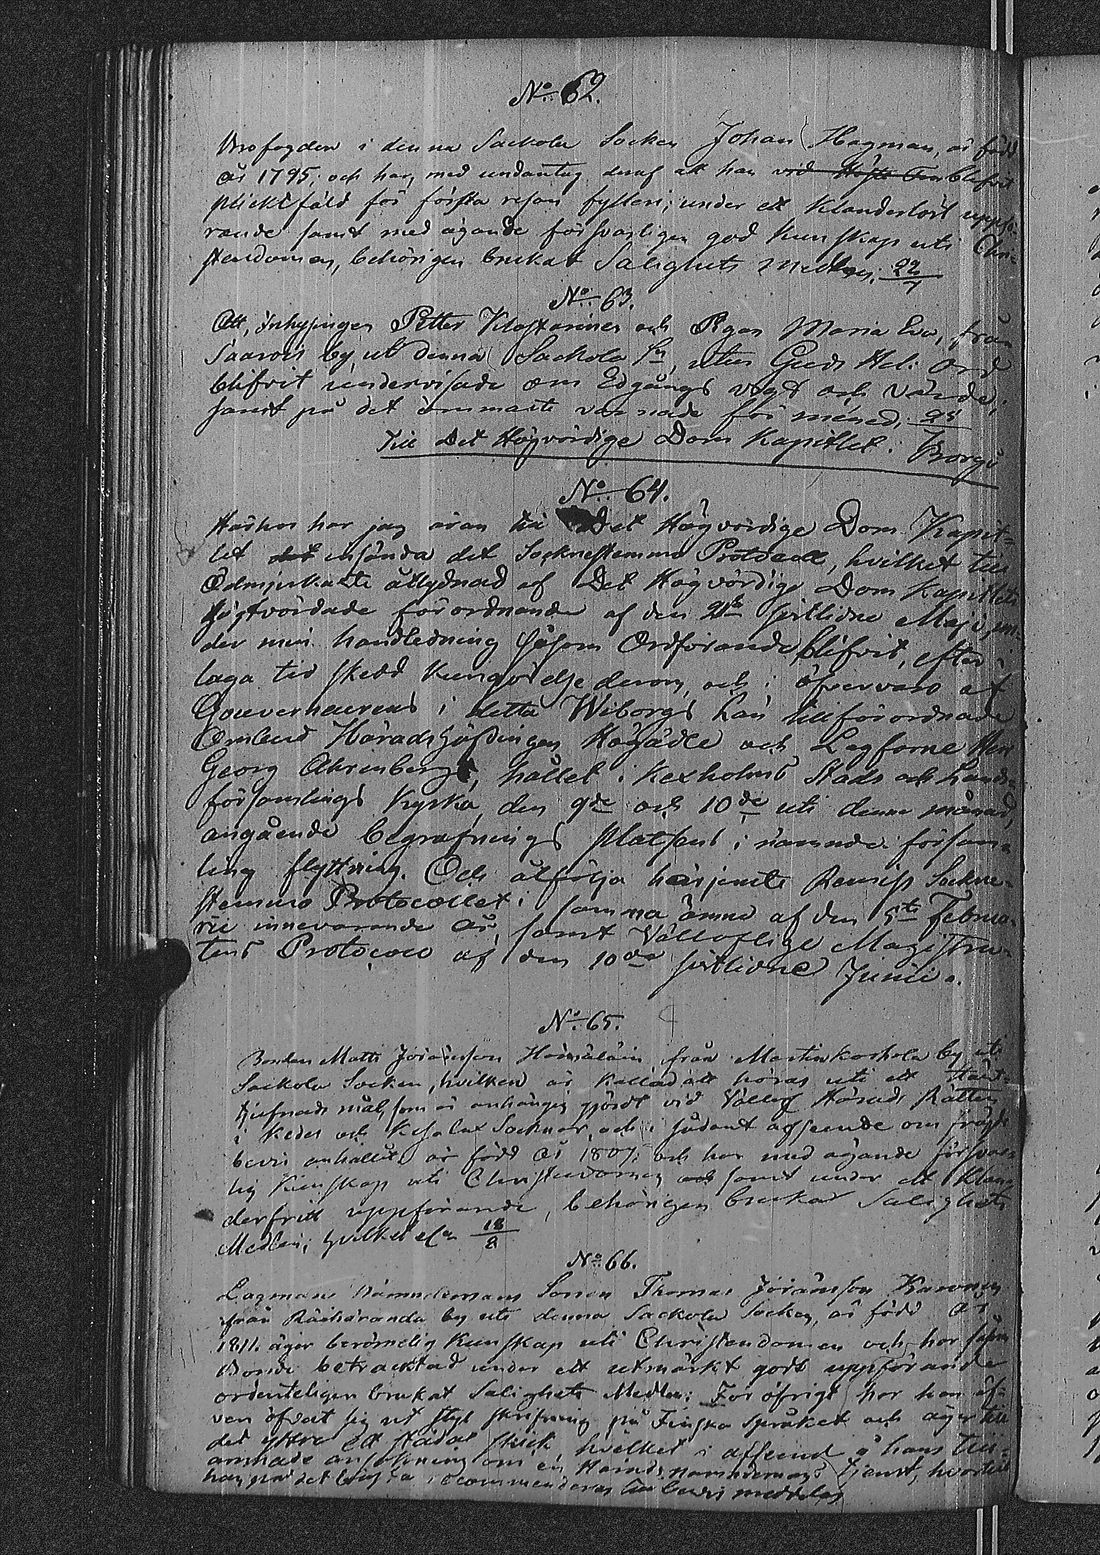 No. 62.
Brofogden i denna Sackola Socken Johan Hagman, är född
år 1795; och har, med undantag deraf att han blifvit
pliktfäld för första resan fylleri; under ett klanderlöst uppfö-
rande samt med ägande försvarligen god kunskap uti Chri-
stendomen, behörigen brukat Salighets Medlen; 22/7
No. 63.
Att, Inhysingen Petter Klostarinen och Pigan Maria Eva, från
Saarois by ut denna Sackola Sn, utur Guds Hel. Ord
blifvit undervisade om Edgångs vigt och värde;
samt på det ömmaste varnade för mened; 25
Till Det Högvördige Dom Kapitlet. Borgå
No. 64.
Härhos har jag äran till Det Högvördige Dom Kapit-
let insända det Sockenstemmo Protocoll, hvilket till
Ödmjukaste åtlydnad af Det Högvördige Dom Kapitlets
Högtvördade förordnande af den sistlidne Maji, un-
der min handledning såsom Ordförande blifvit, efter i
laga tid skedd kungörelse derom, och i öfvervaro af
Gouverneurens i detta Wiborgs Län tillförordnade
Ombud Häradshöfdingen Högädle och Lagfarne Herr
Georg Ahrenberg, hållet i Kexholms Stads och Lands
församlings kyrka, den 9de och 10de uti denne månad,
angående begrafnings platsens i nämnde försam-
ling flyttning. Och åtfölja härjemte Sockne-
stemmo Protocollet i samma ämne af den 5te Februa-
rii innevarande år, samt Vällofliga Magistra-
tens Protocoll af den 10de sistlidne Junii.
No. 65.
Bonden Matts Jöransson Hämäläin från Martinkorhola by uti
Sackola Socken, hvilken är kallad att höras uti ett
tjufnads mål, som är anhängig gjordt vid Vällofl Härads Rätten
i Keder och Kifalax Socknar, och i sådant afseende om frägde
bevis anhållit, är född år 1807; och har med ägande försvar-
lig kunskap uti Christendomen samt under ett klan-
derfritt uppförande, behörigen brukat Salighets
Medlen; hvilket 18/8
No. 66.
Lagmans Nämndemans Sonen Thomas Jöransson Karvonen
från Räihäranda by uti denna Sackola Socken, är född år
1811. äger berömelig kunskap uti Christendomen och har såsom
Bonde betraktad under ett utmärkt godt uppförande
ordenteligen brukat Salighets Medlen: För öfrigt har han äf-
ven öfvat sig vid skrifning på Finska språket och äger till
det yttre ett städat skick, hvilket i afseende å hans till-
ansökning om en Härads nämndemans tjenst, hvartill
han på det recommenderas till bevis meddelas